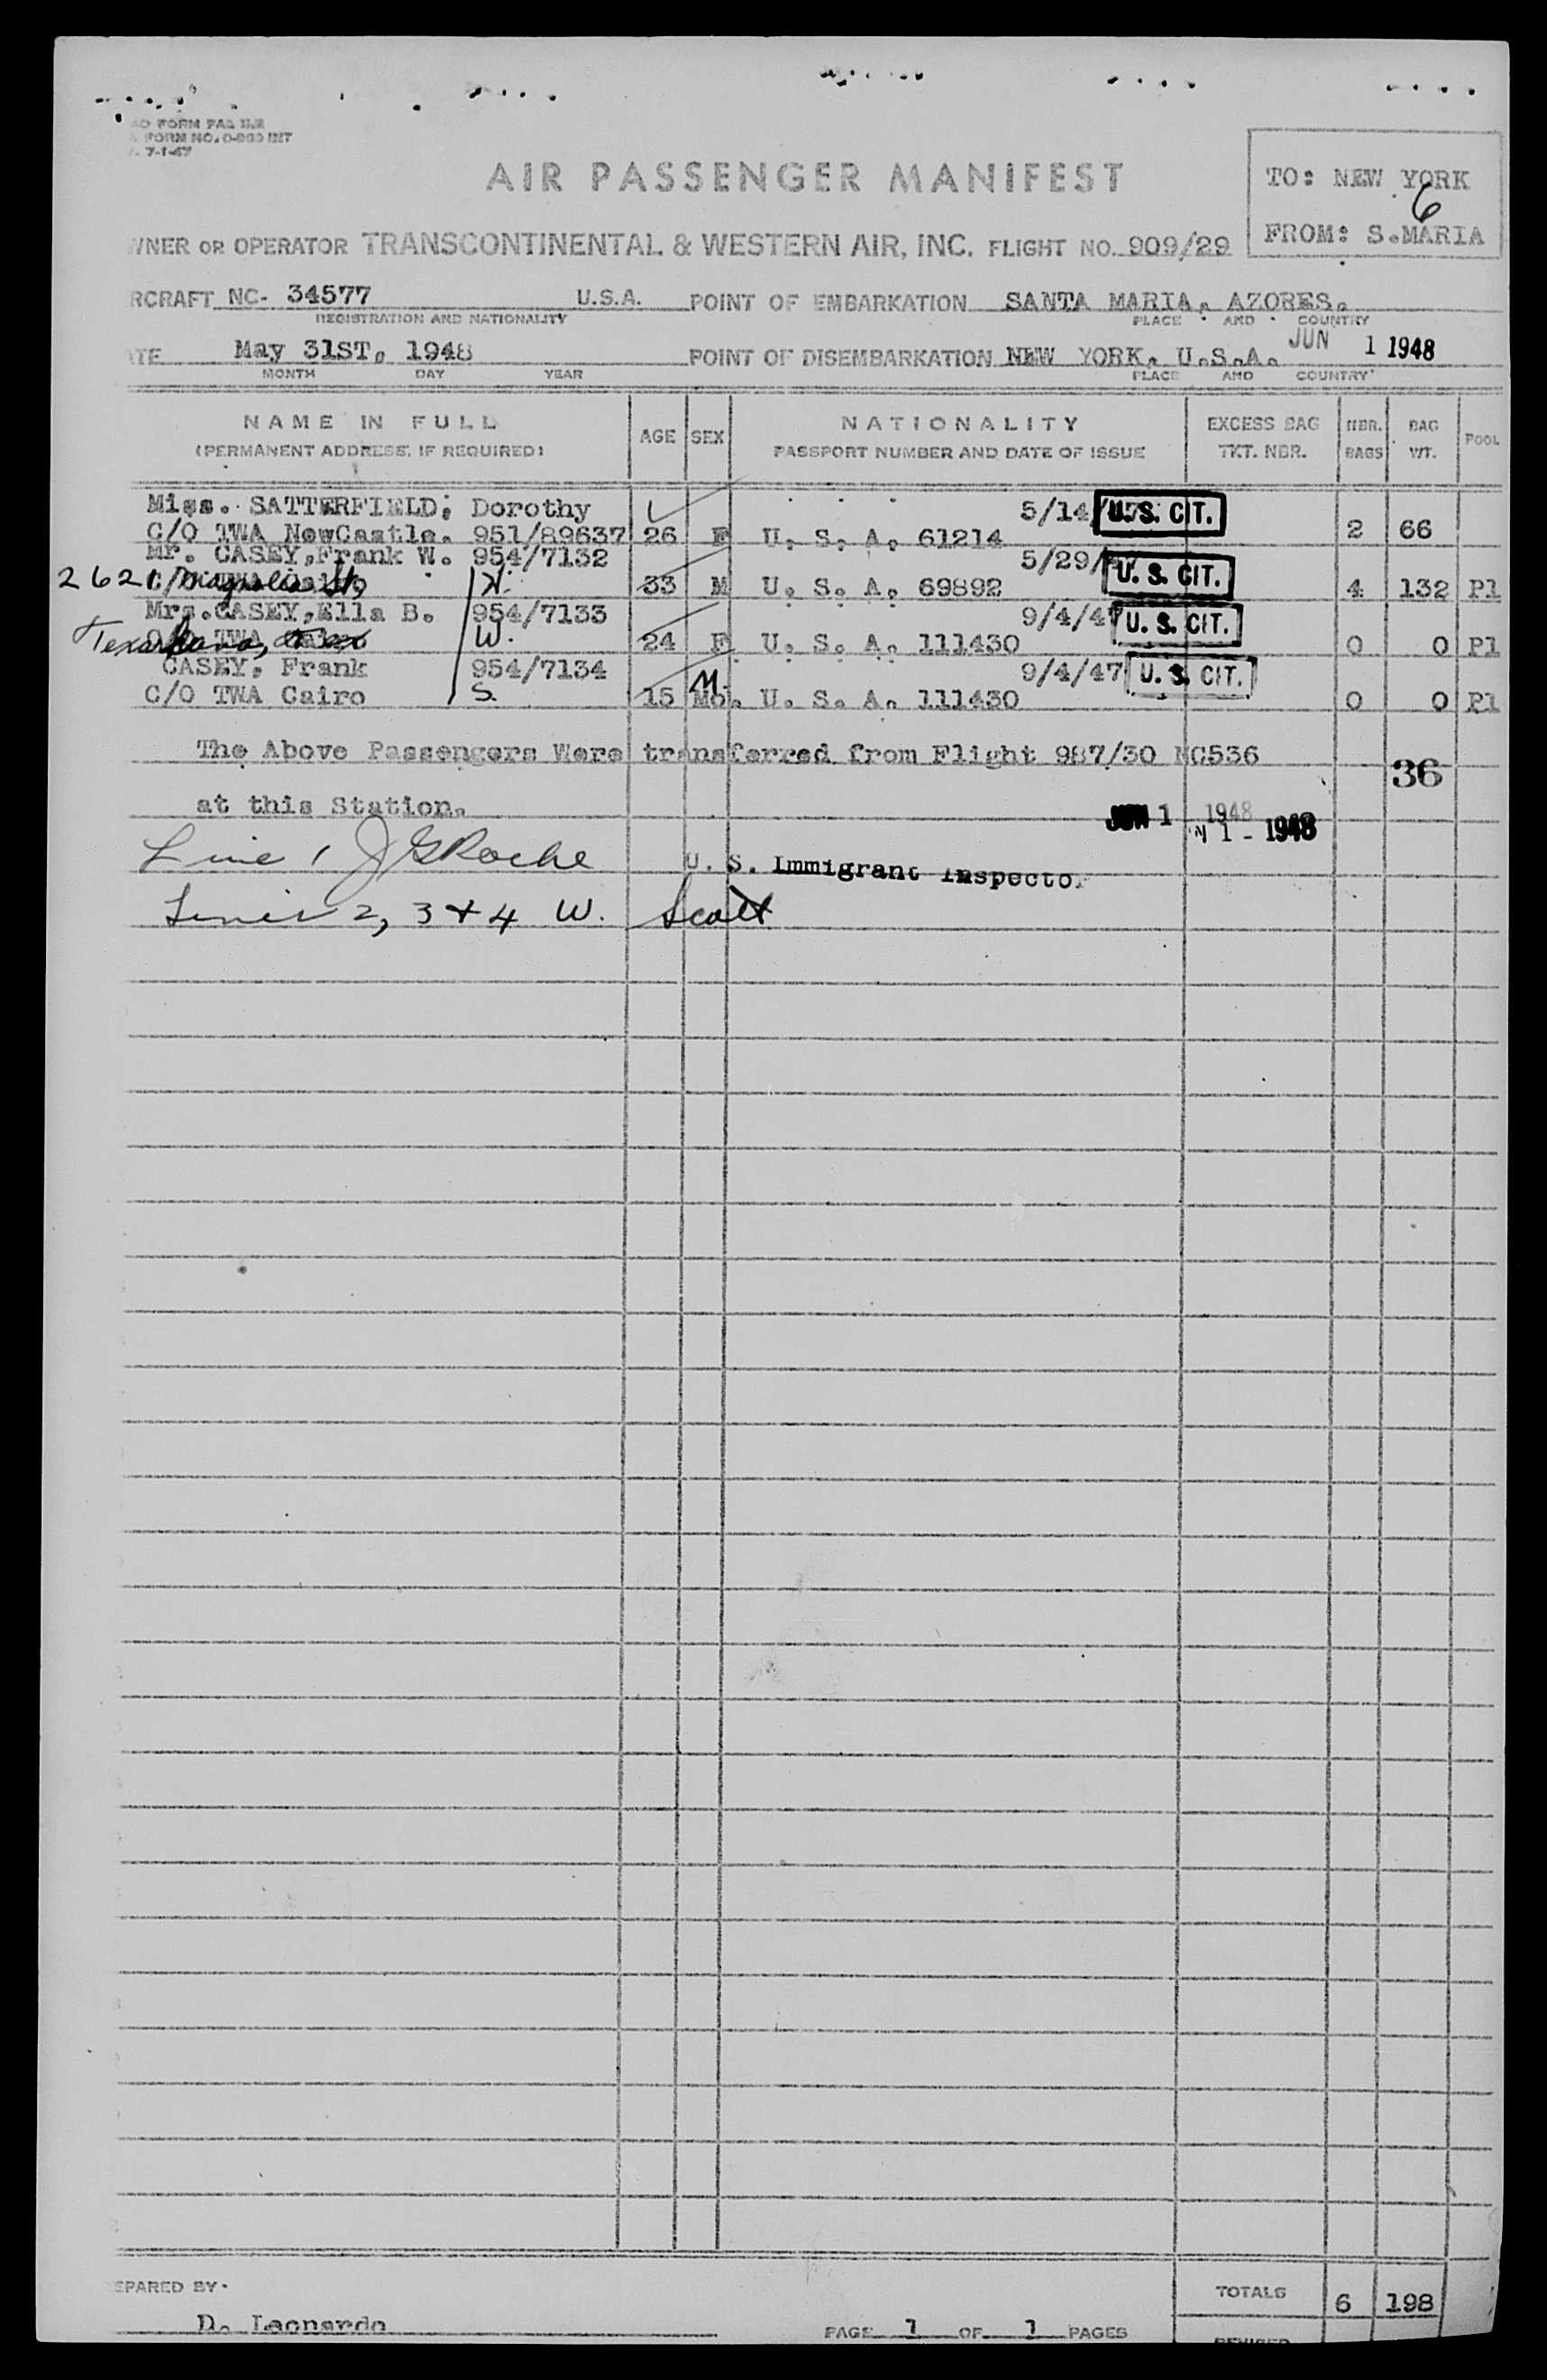 AO FORM PAA
FORM NO. O-890 INT
7-1-47
AIR PASSENGER MANIFEST
TO: NEW YORK
6
FROM: S.MARIA
WNER OR OPERATOR TRANSCONTINENTAL & WESTERN AIR, INC. FLIGHT NO. 909/29
RCRAFT NC- 34577 U.S.A. POINT OF EMBARKATION SANTA MARIA, AZORES.
REGISTRATION AND NATIONALITY PLACE AND COUNTRY
ATE May 31ST, 1948 POINT OF DISEMBARKATION NEW YORK, U.S.A. JUN 1 1948
MONTH DAY YEAR PLACE AND COUNTRY
NAME IN FULL AGE SEX NATIONALITY EXCESS BAG NBR. BAG POOL
(PERMANENT ADDRESS, IF REQUIRED) PASSPORT NUMBER AND DATE OF ISSUE TKT. NBR. BAGS WT.
Miss. SATTERFIELD, Dorothy 5/14/ U.S. CIT.
C/O TWA NewCastle. 951/89637 26 F U. S. A. 61214 2 66
Mr. CASEY,Frank W. 954/7132 5/29/ U. S. CIT.
2621 Magnolia St, H. 33 M U. S. A. 69892 4 132 Pl
Mrs.CASEY,Ella B. 954/7133 9/4/4 U. S. CIT.
Texarkana, Tex W. 24 F U. S. A. 111430 0 0 Pl
CASEY, Frank 954/7134 M. 9/4/47 U. S. CIT.
C/O TWA Cairo S. 15 Mo. U. S. A. 111430 0 0 Pl
The Above Passengers Were transferred from Flight 987/30 NC536
36
at this Station.
JUN 1 1948
N 1 - 1948
Line 1 J G Roche U. S. Immigrant Inspecto.
Lines 2, 3 + 4 W. Scott
EPARED BY. TOTALS 6 198
D. Leonardo PAGE 1 OF 1 PAGES
REVISED